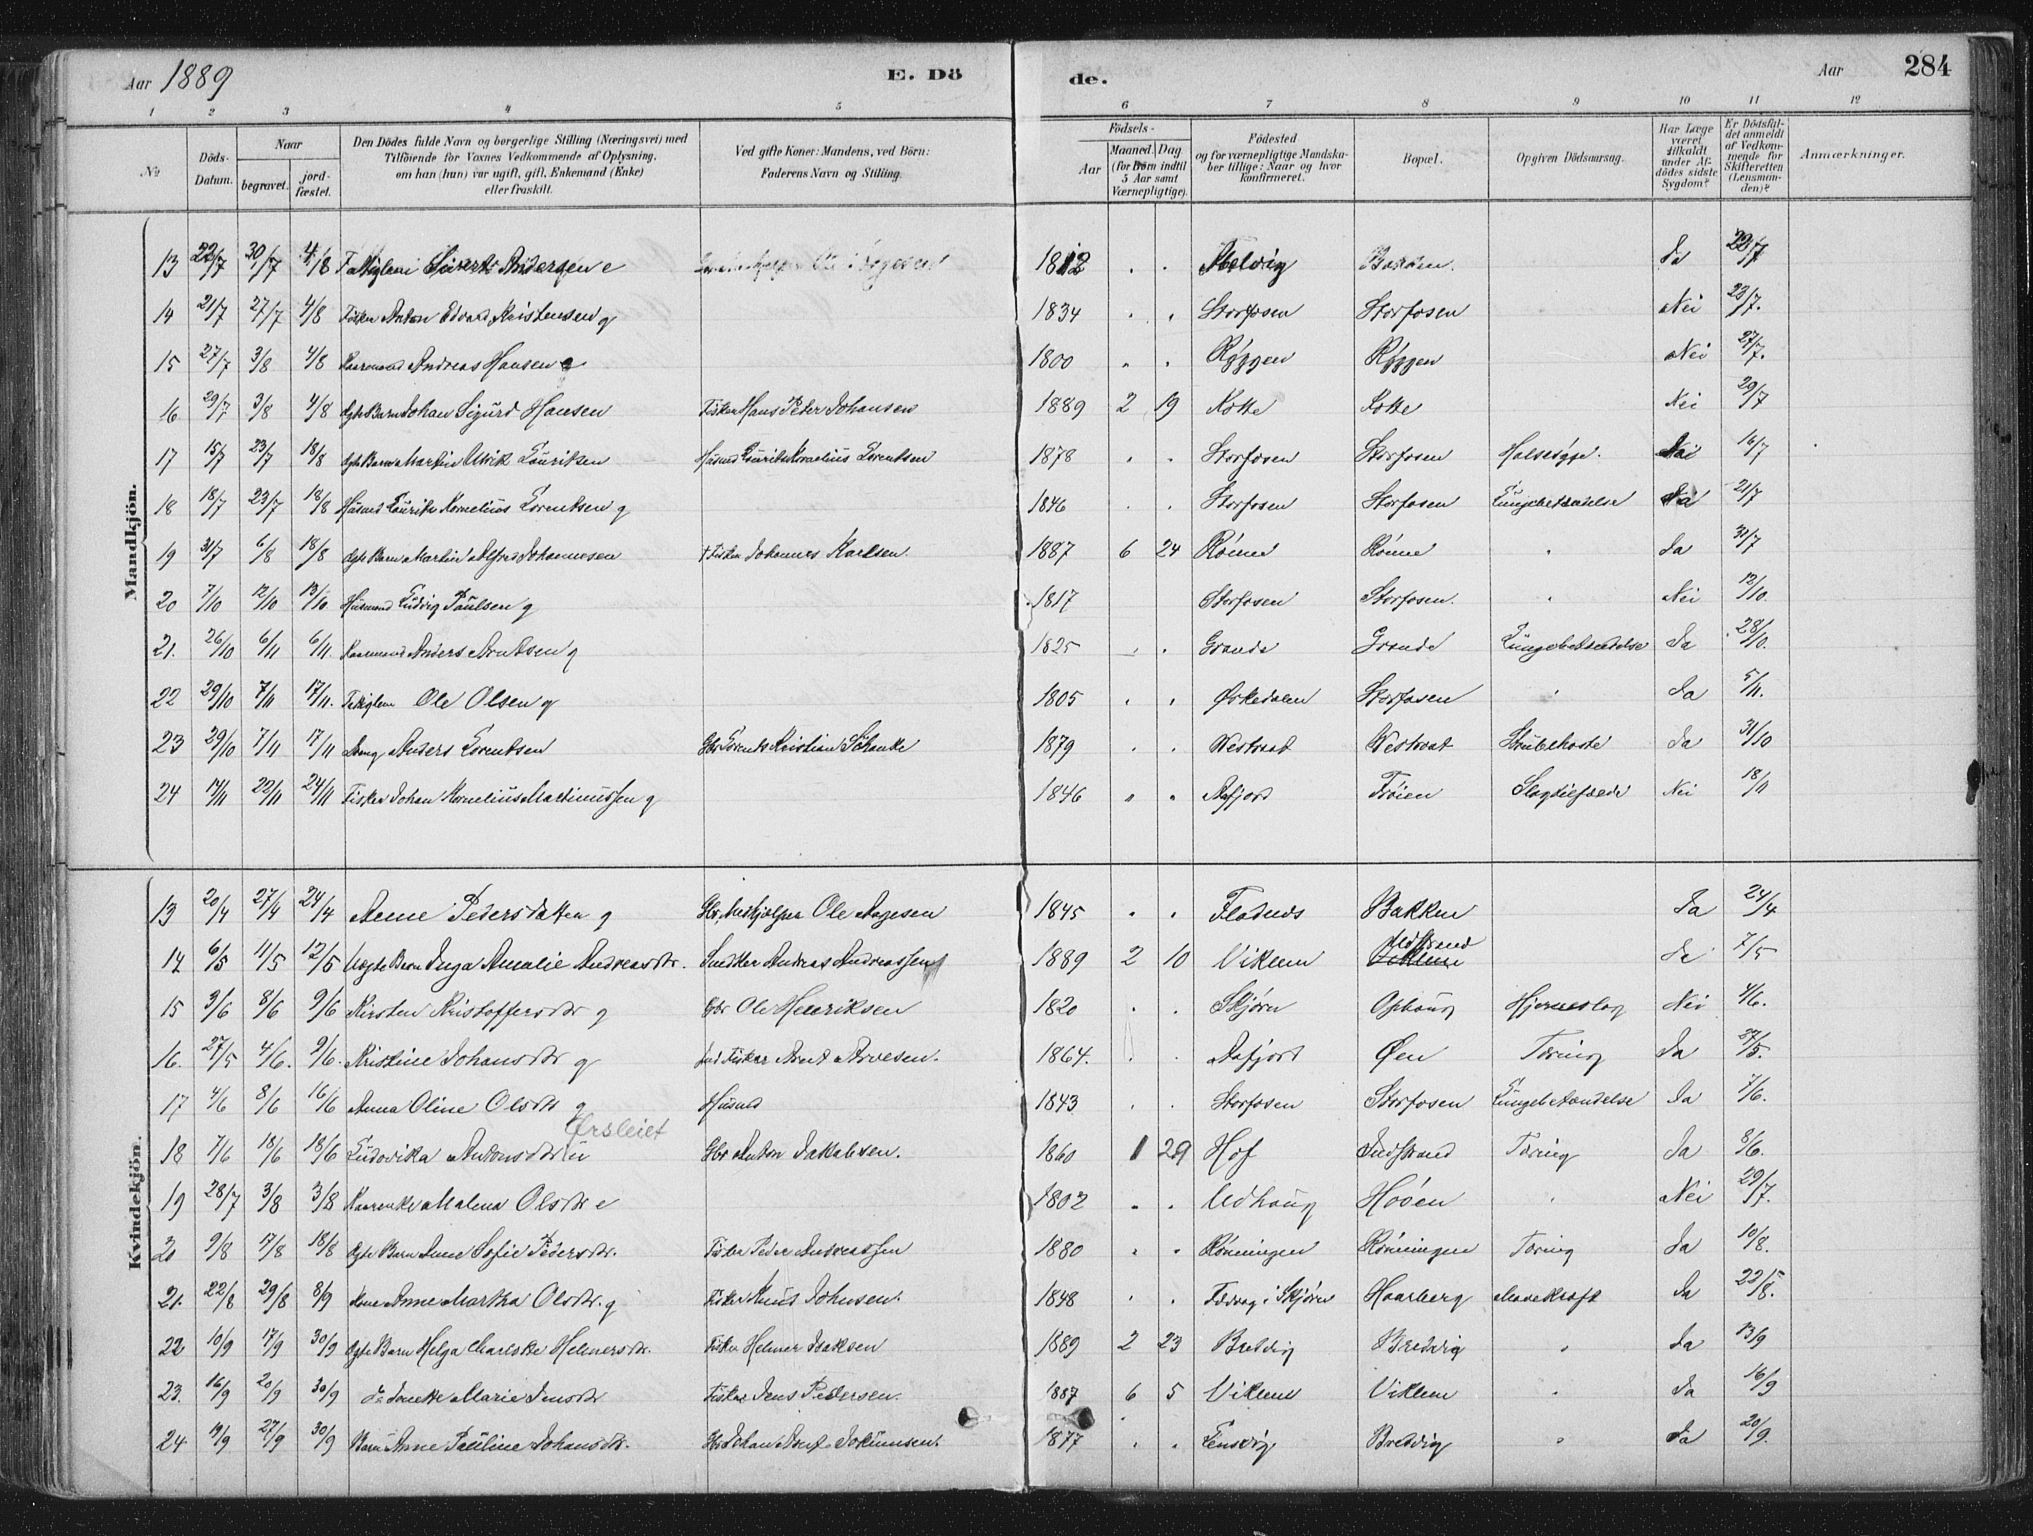 Aar 1889 E. Dö de. Aar 284
1 2 3 4 5 6 7 8 9 10 11 12
№ Döds-Datum. Naar begravet. jordfæstet. Den Dödes fulde Navn og borgerlige Stilling (Næringsvei) med Tilföiende for Voxnes Vedkommende af Oplysning, om han (hun) var ugift, gift, Enkemand (Enke) eller fraskilt. Ved gifte Koner: Mandens, ved Börn: Faderens Navn og Stilling. Födsels- Aar Maaned. Dag. (for Börn indtil 5 Aar samt Værnepligtige). Födested og for værnepligtige Mandskaber tillige: Naar og hvor konfirmeret. Bopæl. Opgiven Dödsaarsag. Har Læge været tilkaldt under Afdödes sidste Sygdom? Er Dödsfaldet anmeldt af Vedkommende for Skifteretten (Lensmanden)? Anmærkninger.
Mandkjön.
13 22/7 30/7 4/8 Sivert Andersen e 1812 . . Bakken. Ja 22/7
14 21/7 27/7 4/8 Fisker Anton Edvard Kristensen g 1834 . . Storfosen Storfosen Nei 23/7.
15 27/7 3/8 4/8 Kaarmand Andreas Hansen e 1800 . . Ryggen Ryggen Nei 27/7.
16 29/7 3/8 4/8 Ægte Barn Johan Sigurd Hansen Fisker Hans Peter Johansen 1889 2 19 Kotte Kotte Nei 29/7
17 15/7 23/7 18/8 Ægte Barn Martin Ulrik Lauritsen Husmd Laurits Kornelius Lorentsen 1878 . . Storfosen Storfosen Halsesyge. Nei 16/7
18 18/7 23/7 18/8 Husmd Laurits Kornelius Lorentsen g 1846 . . Storfosen Storfosen Lungebetændelse Ja 21/7
19 31/7 6/8 18/8 Ægte Barn Martin Alfred Johannesen Fisker Johannes Karlsen 1887 6 24 Rönne Rönne " Ja 31/7
20 7/10 12/10 13/10 Husmand Ludvig Paulsen g 1817 Storfosen Storfosen. " Nei 12/10.
21. 26/10 6/11 6/11. Kaarmand Anders Arntsen g 1825 . . Grande Grande Lungebetændelse Ja 28/10.
22 29/10 7/11 17/11. Ole Olsen g 1805 . . Orkedalen Storfosen " Ja 5/11.
23 29/10 7/11 17/11 Dreng Anders Lorentsen Gbr Lorents Kristian Schanke 1879 . . Westraat Westraat Strubehoste Ja 31/10
24 14/11 22/11 24/11 Fisker Johan Kornelius Martinussen g 1846 " " Aafjord Tröien Slagtilfælde Nei 18/11
Kvindekjön.
13 20/4 27/4 24/4 Anne Pedersdatter g Gbr, Medhjælper Ole Aagesen 1845 " " Fladnes Bakken Ja 24/4
14 6/5 11/5 12/5 Uægte Barn Inga Amalie Andreasdtr. Snedker Andreas Andreassen 1889 2 10 Viklem Indstrand Viklem Ja 7/5
15 3/6 8/6 9/6 Kirsten Kristoffersdtr g Gbr Ole Henriksen 1820 . . Skjørn Ophaug Hjerneslag Nei 4/6.
16. 27/5 4/6. 9/6. Kristine Johansdtr g Fisker Arnt Arnesen. 1864. . . Aafjord Øen Tæring Ja 27/5.
17 4/6 8/6 16/6 Anna Oline Olsdtr g Husmd 1843 . . Storfosen Storfosen Lungebetændelse Ja 7/6.
Ørsleiet
18 7/6 18/6 18/6 Ludovika Antonsdtr u Gbr Anton Jakobsen. 1860 1 29 Hof Indstrand Tæring Ja 8/6.
19 28/7 3/8 3/8 Malena Olsdtr e 1802 " . Udhaug Hoöen " Nei 29/7.
20 9/8 17/8 18/8 Ægte Barn Anne Sofie Pedersdtr. Fisker Peder Andreassen 1880 " " Rönningen Rönningen Tæring Ja 10/8.
21. 22/8 29/8 8/9 Kone Anne Martha Olsdtr. g Fisker Knud Johnsen. 1848 . . i Skjørn Haarberg Mavekræft Ja 22/8.
22 10/9 17/9 30/9 Ægte Barn Helga Charlotte Helmersdtr. Fisker Helmer Isaksen 1889 2 23 Bredvig Bredvig " Ja 13/9
23. 16/9 20/9 30/9 do Jonette Marie Jensdtr Fisker Jens Pedersen. 1887 6 5 Viklem Viklem " Ja 16/9
24 19/9 27/9 30/9 Barn Anne Pauline Johansdtr. Gbr Johan Arnt Jokumsen. 1877 . . Lensvig Bredvig " Ja 20/9.